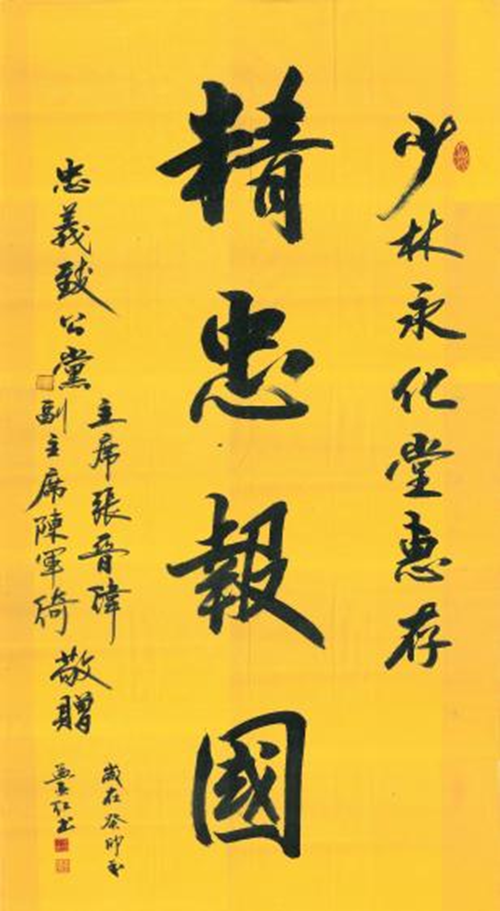 少林永化堂惠存
精忠報國
忠義致公黨
主席張晉瑋
副主席陳軍綺
敬贈
歲在癸卯
書